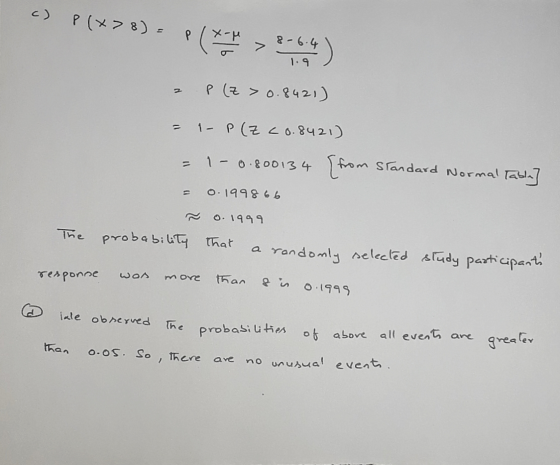 c) P(x > 8) = P(x-μ/σ > 8-6.4/1.9)
= P(Z > 0.8421)
= 1 - P(Z < 0.8421)
= 1 - 0.800134 [from Standard Normal Table]
= 0.199866
≈ 0.1999
The probability that a randomly selected study participant's
response was more than 8 is 0.1999
d) We observed The probabilities of above all events are greater
than 0.05. So, there are no unusual events.